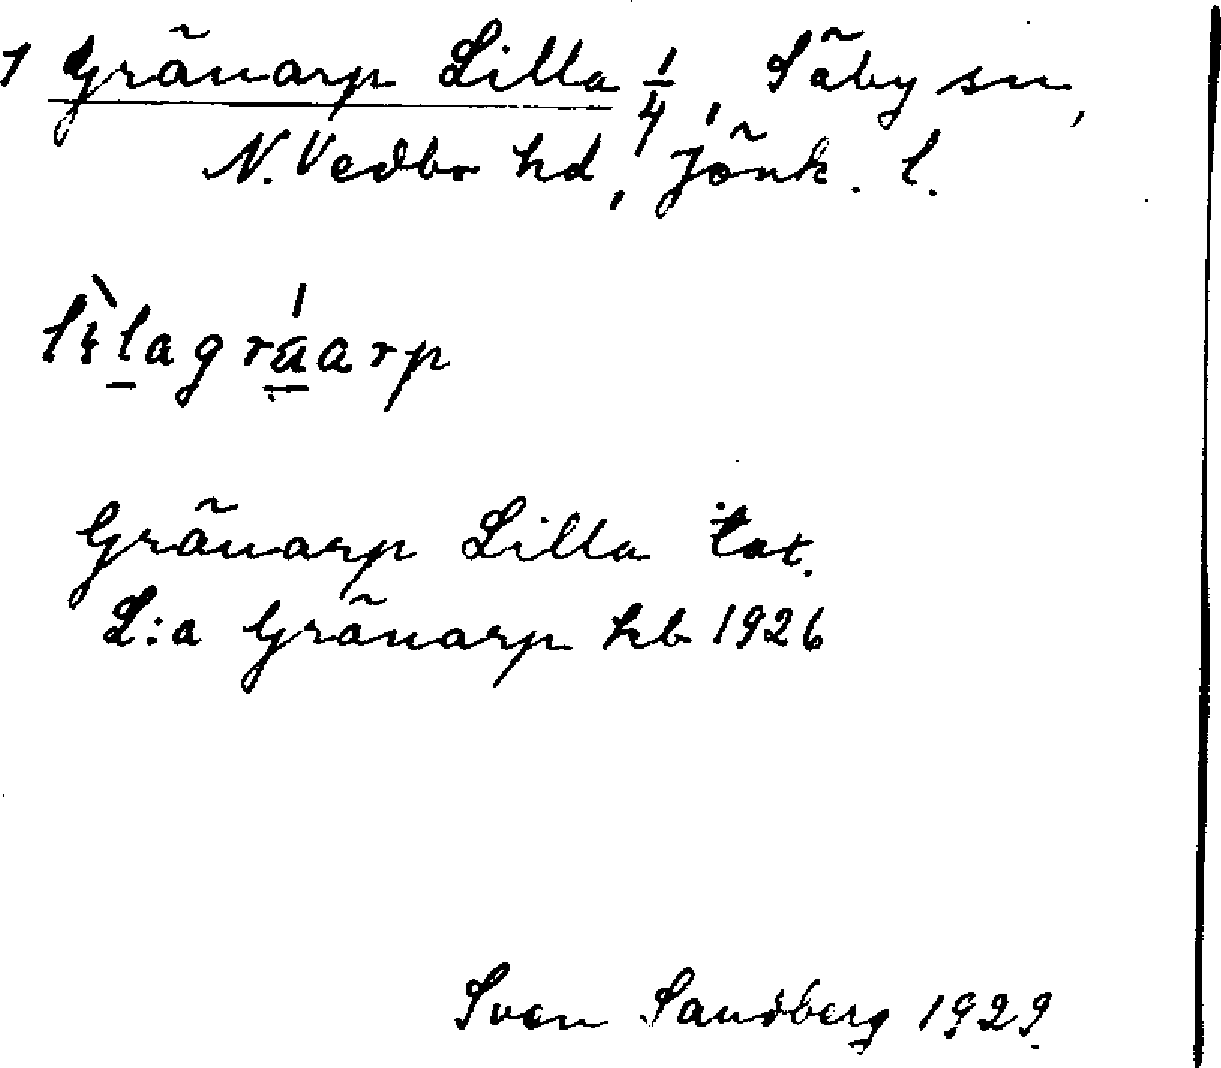 1 Gränarp Lilla 1/4, Säby sn,
N. Vedbo hd, Jönk. l.
Gränarp Lilla tax.
L:a Gränarp kb 1926
Sven Sandberg 1929